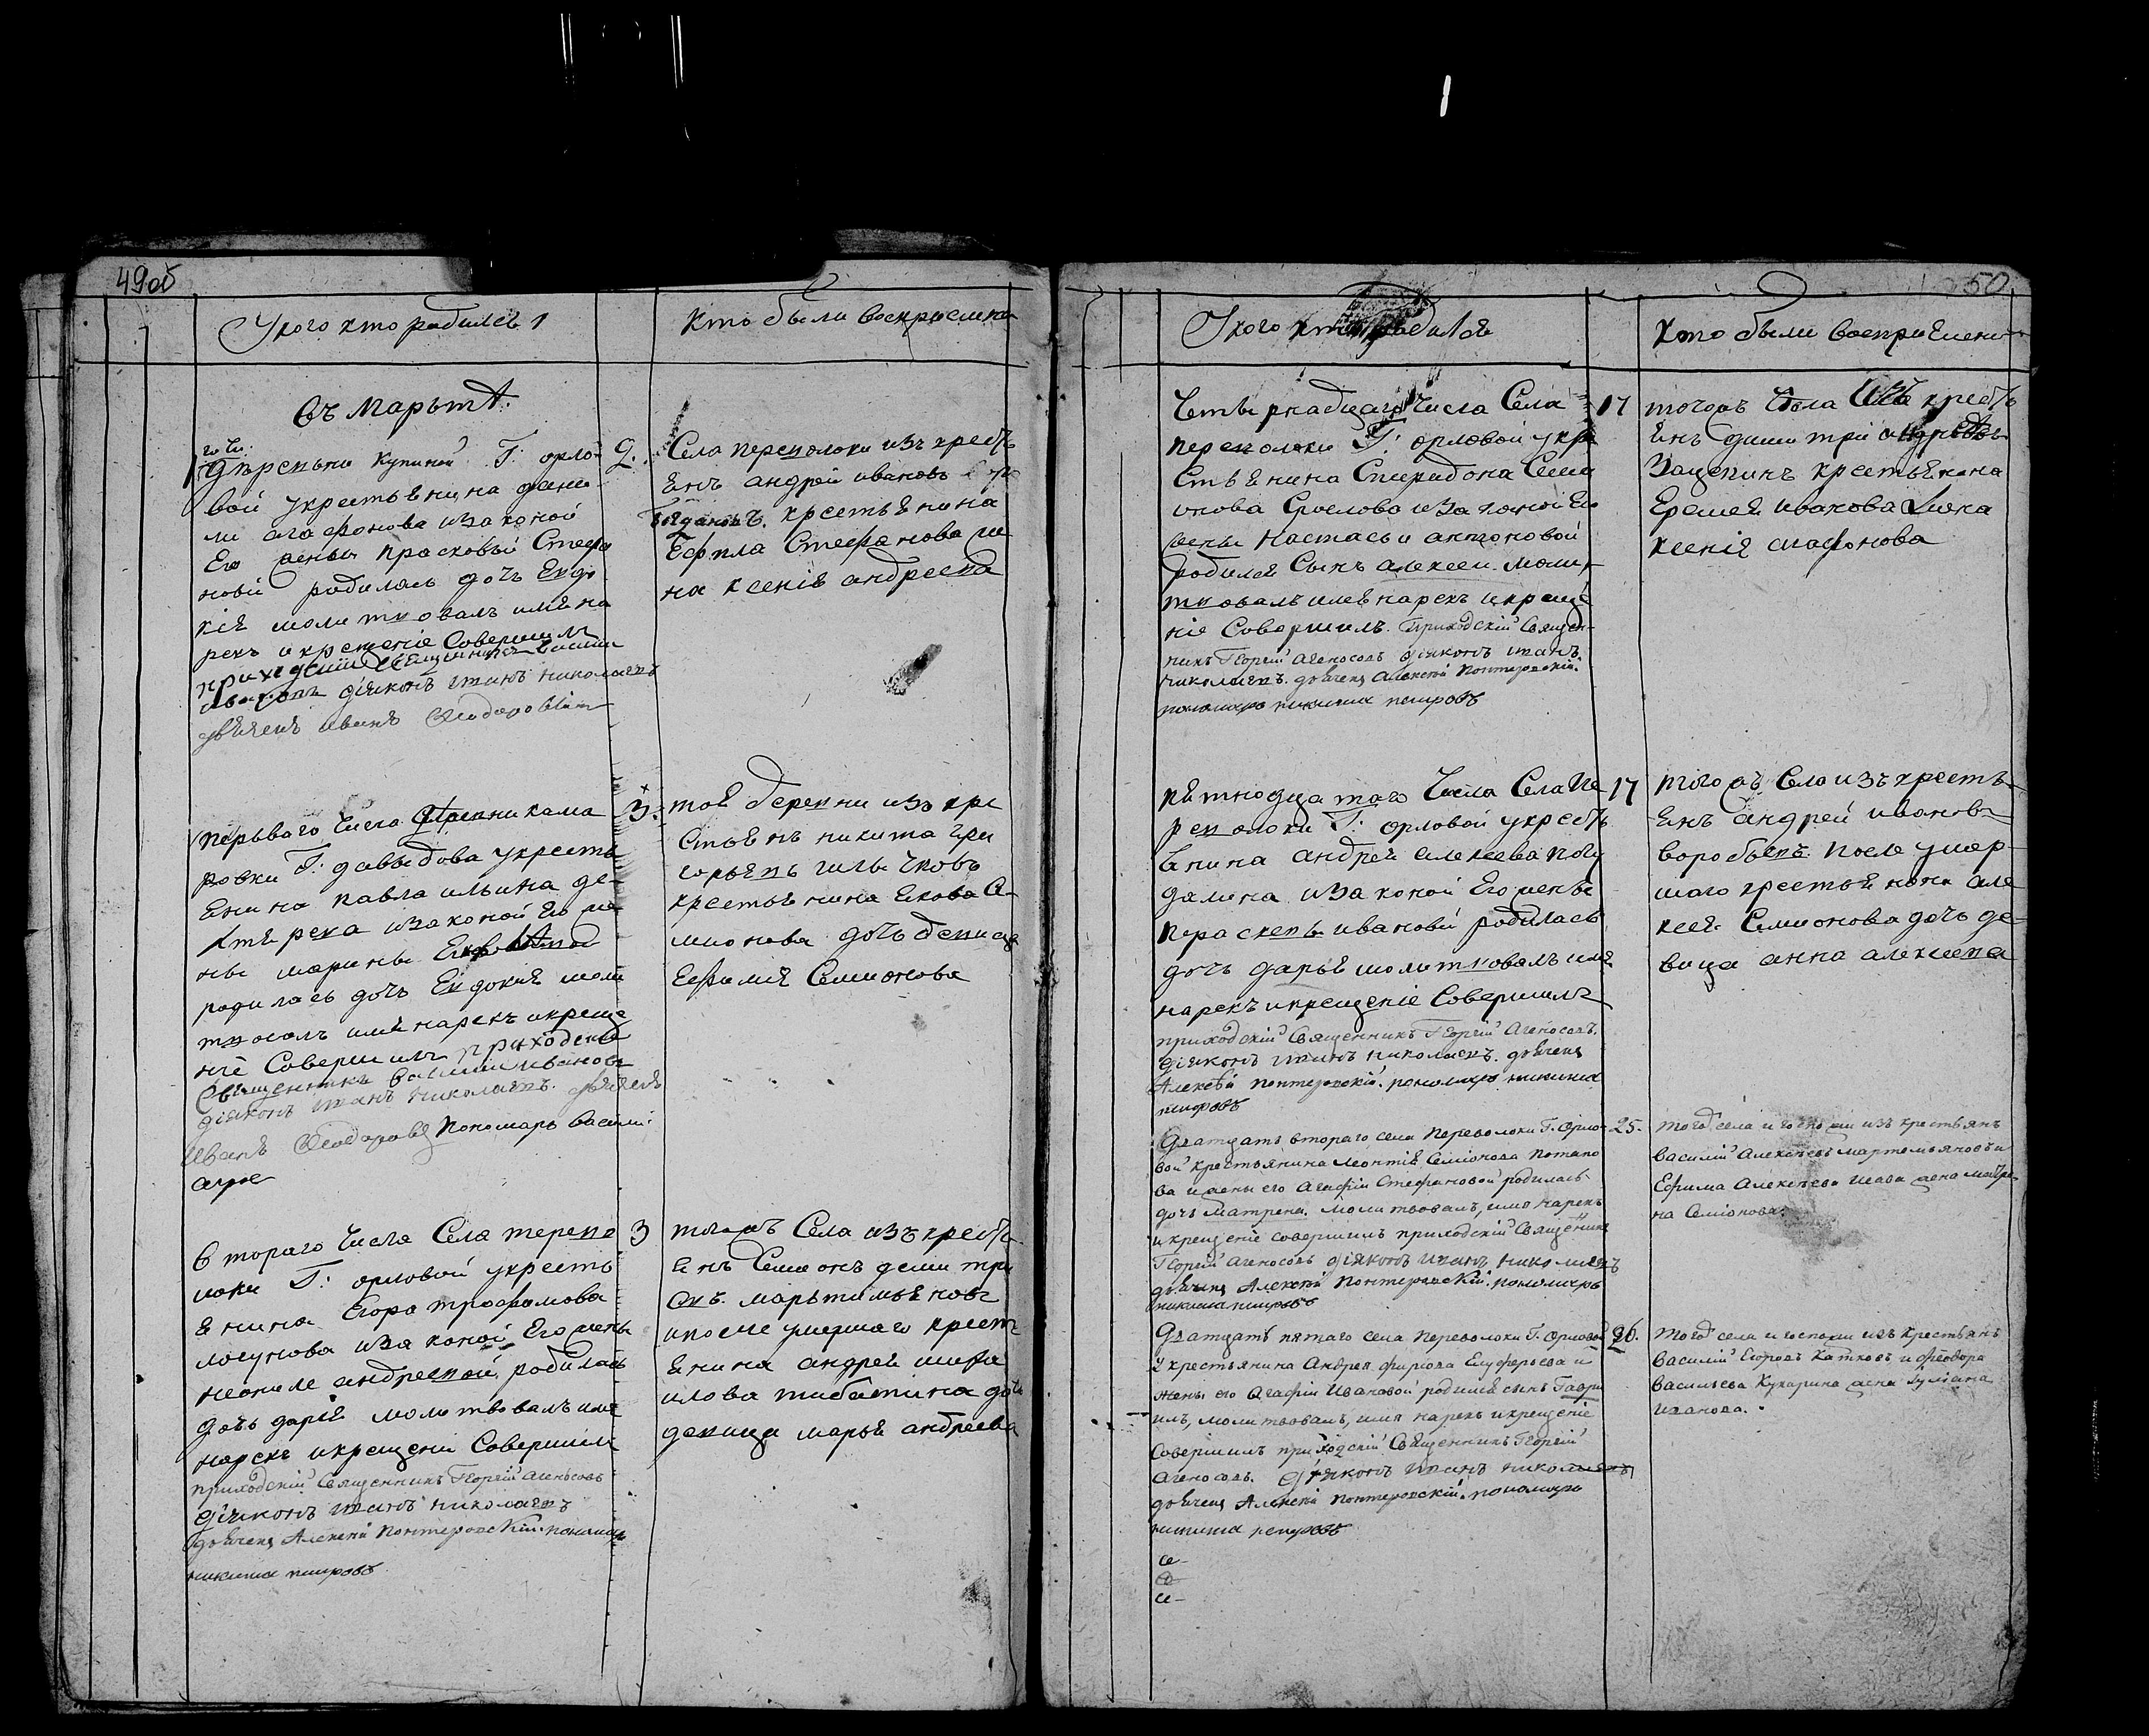 49об
У кого кто родился
кто были восприемни
Въ Мартѣ.
1 го чи: Деревьни Купиной Г: орло 2.
вой укрестьянина дани
ли агафонова иза коной
Его жены прасковьи Стефа
новой родилась дочь Евдо
кія молитвовалъ имя на
рекъ и крещеніе Совершилъ
приходскіи Священникъ Василии
Ивановъ діяконъ Иванъ николаевъ
дьячекъ иванъ Ѳеодоровъ
Села переволоки изъ крестъ
янъ андрей ивановъ
крестьянина
Стефанова же
на ксенія андреева
перьваго Числа 3.
ровки Г: давыдова укресть
янина павла ильина де
хтярева иза коной Его же
ны марины
родилась дочь Евдокія моли
твовалъ имя нарекъ и креще
ніе Совершилъ приходски
Священникъ Василии Ивановъ
діяконъ Иванъ николаевъ. дьячекъ
Иванъ Ѳеодоровъ Пономарь Василій
тоя деревни изъ кре
стьянъ никита гри
горьевъ
крестьянина Якова Се
мионова дочь девица
Ефимія Семионова
втораго Числа Села перево 3
локи Г: орловой укресть
янина Егора трофимова
логунова иза коной Его жены
неониле андреевой родилась
дочь дарія молитвовалъ имя
нарекъ и крещеніи Совершилъ
приходскій Священникъ Георгій Агеносовъ
діяконъ Иванъ николаевъ
дьячекъ Алексѣй Понтеровскій. пономарь
никита петровъ
тогожъ Села изъ кресть
янъ Семионъ дмитри
евъ. мартимьяновъ
и после умершаго кресть
янина андрея миха
илова дочь
девица марья андреева
50
У кого кто родился
Кто были восприемни
Четырнадцатаго Числа Села 17
переволоки Г: орловой укре
стьянина Спиридона Семи
онова иза коной Его
жены Настасьи антоновой
родился Сынъ алексеи. моли
твовалъ имя нарекъ и креще
ніе Совершилъ. Приходскій Священ-
никъ Георгій Агеносовъ діяконъ Иванъ
николаевъ. дьячекъ Алексѣй Понтеровскій.
пономарь никита петровъ
тогожъ Села изъ кресть
янъ дмитрій андреевъ
Защепинъ крестьянина
Еремея ивакова жена
ксенія агафонова
Пятнодцатаго Числа Села Пе 17
револоки Г: орловой укресть
янина андрея алексеева погу
дялина иза коной Его жены
парасковьи ивановой родилась
дочь дарья молитвовалъ имя
нарекъ и крещеніе Совершилъ
приходскій Священникъ Георгій Агеносовъ.
діяконъ Иванъ николаевъ. дьячекъ
Алексѣй Понтеровскій. пономарь никита
петровъ
тогожъ Села изъ кресть
янъ андрей ивановъ
воробьевъ. После умер
шаго крестьянина але
ксея Семионова дочь де
вица анна алексеева
Дватцать втораго села Переволоки Г. Орло 25.
вой крестьянина Леонтія Семіонова Потапо
ва и жены его Агафіи Стефановой родилась
дочь Матрена. молитвовалъ, имя нарекъ
и крещеніе совершилъ приходскій Священникъ
Георгій Агеносовъ діяконъ Иванъ николаевъ
дьячекъ Алексѣй Понтеровскій. пономарь
никита петровъ
Того села и госпожи изъ крестьянъ
Василій Алексѣевъ мартемьяновъ и
Ефима Алексѣева жена Матре
на Семіонова.
Дватцать пятаго села Переволоки Г. Орловой 26.
у крестьянина Андрея Фирсова Елуферьева и
жены его Агафіи Ивановой родился сынъ Гаври
илъ, молитвовалъ, имя нарекъ и крещеніе
Совершилъ приходскій Священникъ Георгій
Агеносовъ. діяконъ Иванъ николаевъ
дьячекъ Алексѣй Понтеровскій. пономарь
никита петровъ
Того села и госпожи изъ крестьянъ
Василій Егоровъ Катковъ и Ѳеодора
Васильева Кухарина жена Іуліана
Иванова.